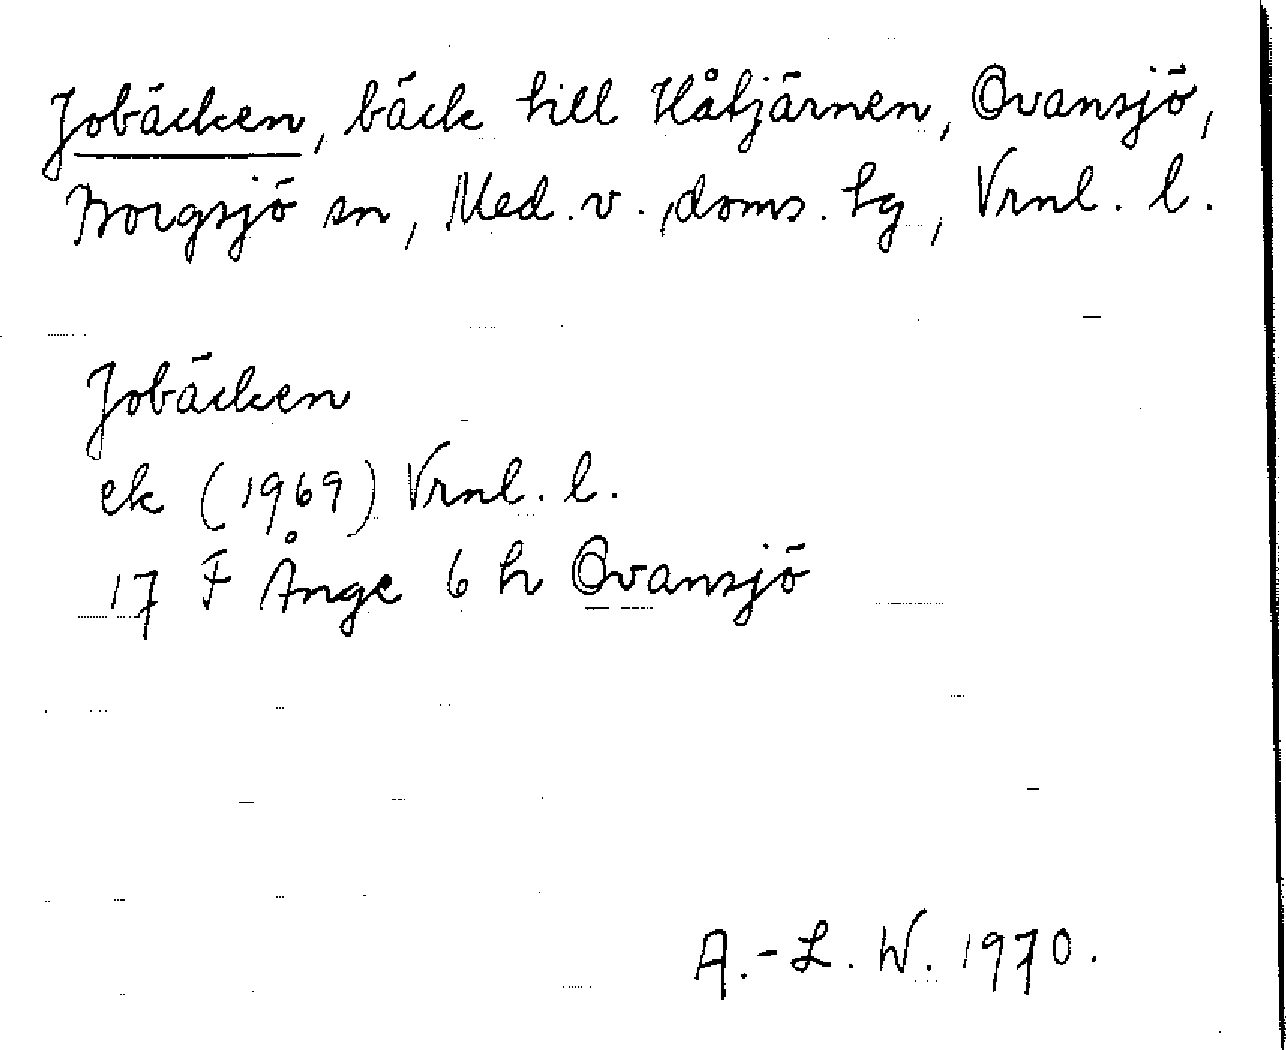 Jobäcken, bäck till Håtjärnen, Ovansjö,
Borgsjö sn, Med. v., doms. tg, Vrnl. l.
Jobäcken
ek (1969) Vrnl. l.
17 F Ånge 6 h Ovansjö
A.-L. W. 1970.